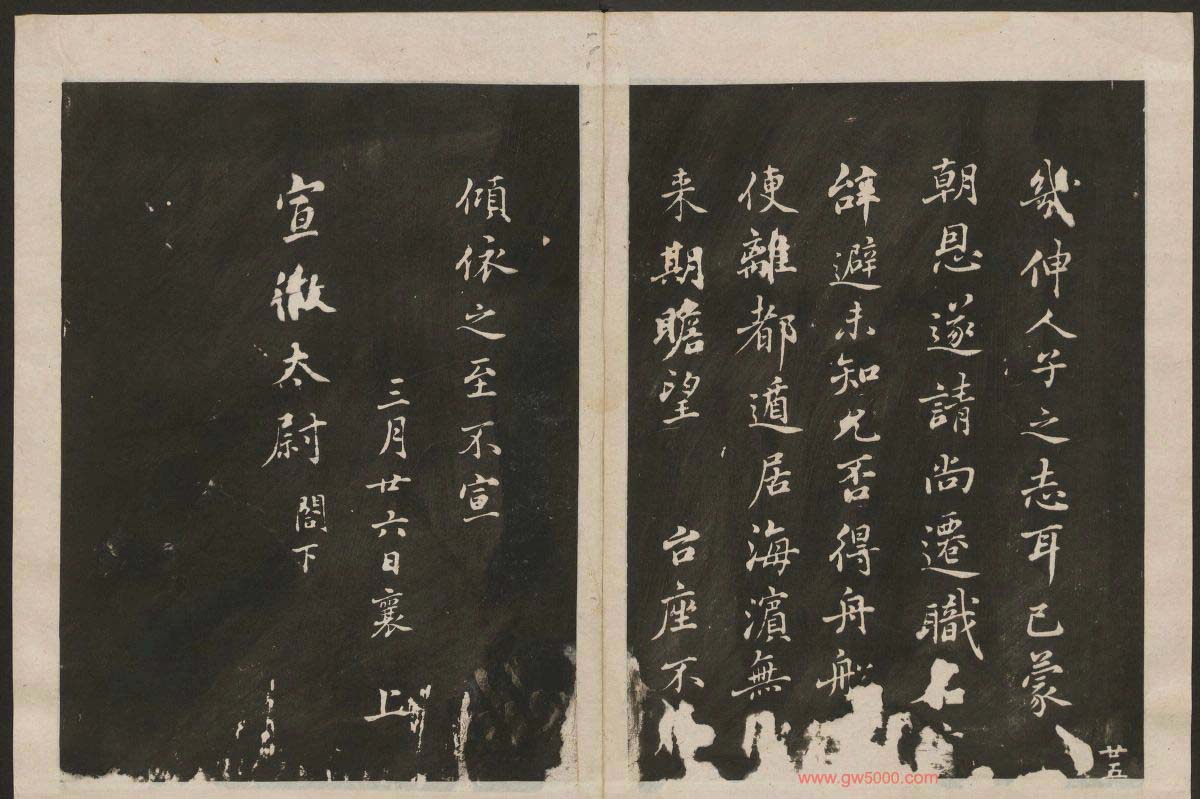 幾伸人子之志耳已蒙
朝恩遂請尚遷職
辞避未知允否得舟舩
便離都遁居海濱無
来期瞻望 台座不
傾依之至不宣
三月廿六日襄 上
宣徽太尉 閤下
廿五
www.gw5000.com